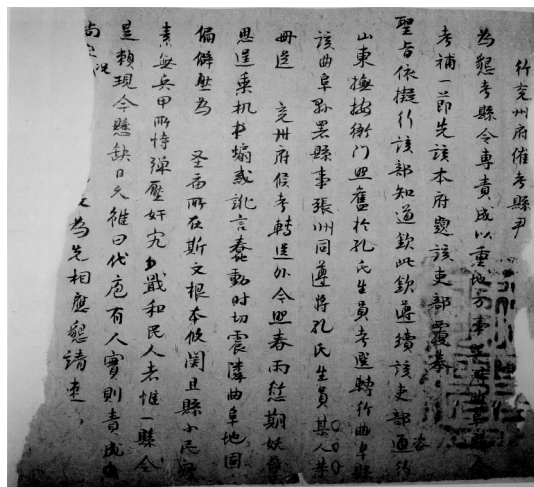 行兖州府催考縣尹
為懇考縣令專責成以重地方事
考補一節先該本府題該吏部覆奉
聖旨依擬行該部知道欽此欽遵續該吏部通行
山東撫按衙門照舊於孔氏生員考選轉行曲阜縣
該曲阜縣署縣事張州同遵將孔氏生員某人等
册送 兖州府候考轉送外今照春雨愆期妖
思逞乘机书煽惑訛言蠢動时切震隣曲阜地固
偏僻然為 圣庙所在斯文根本攸関且縣小民
素無兵甲所恃彈壓奸宄力戢和民人者惟一縣令
是賴現今懸缺日久雖曰代庖有人實則責成
尚 為先相應懇請